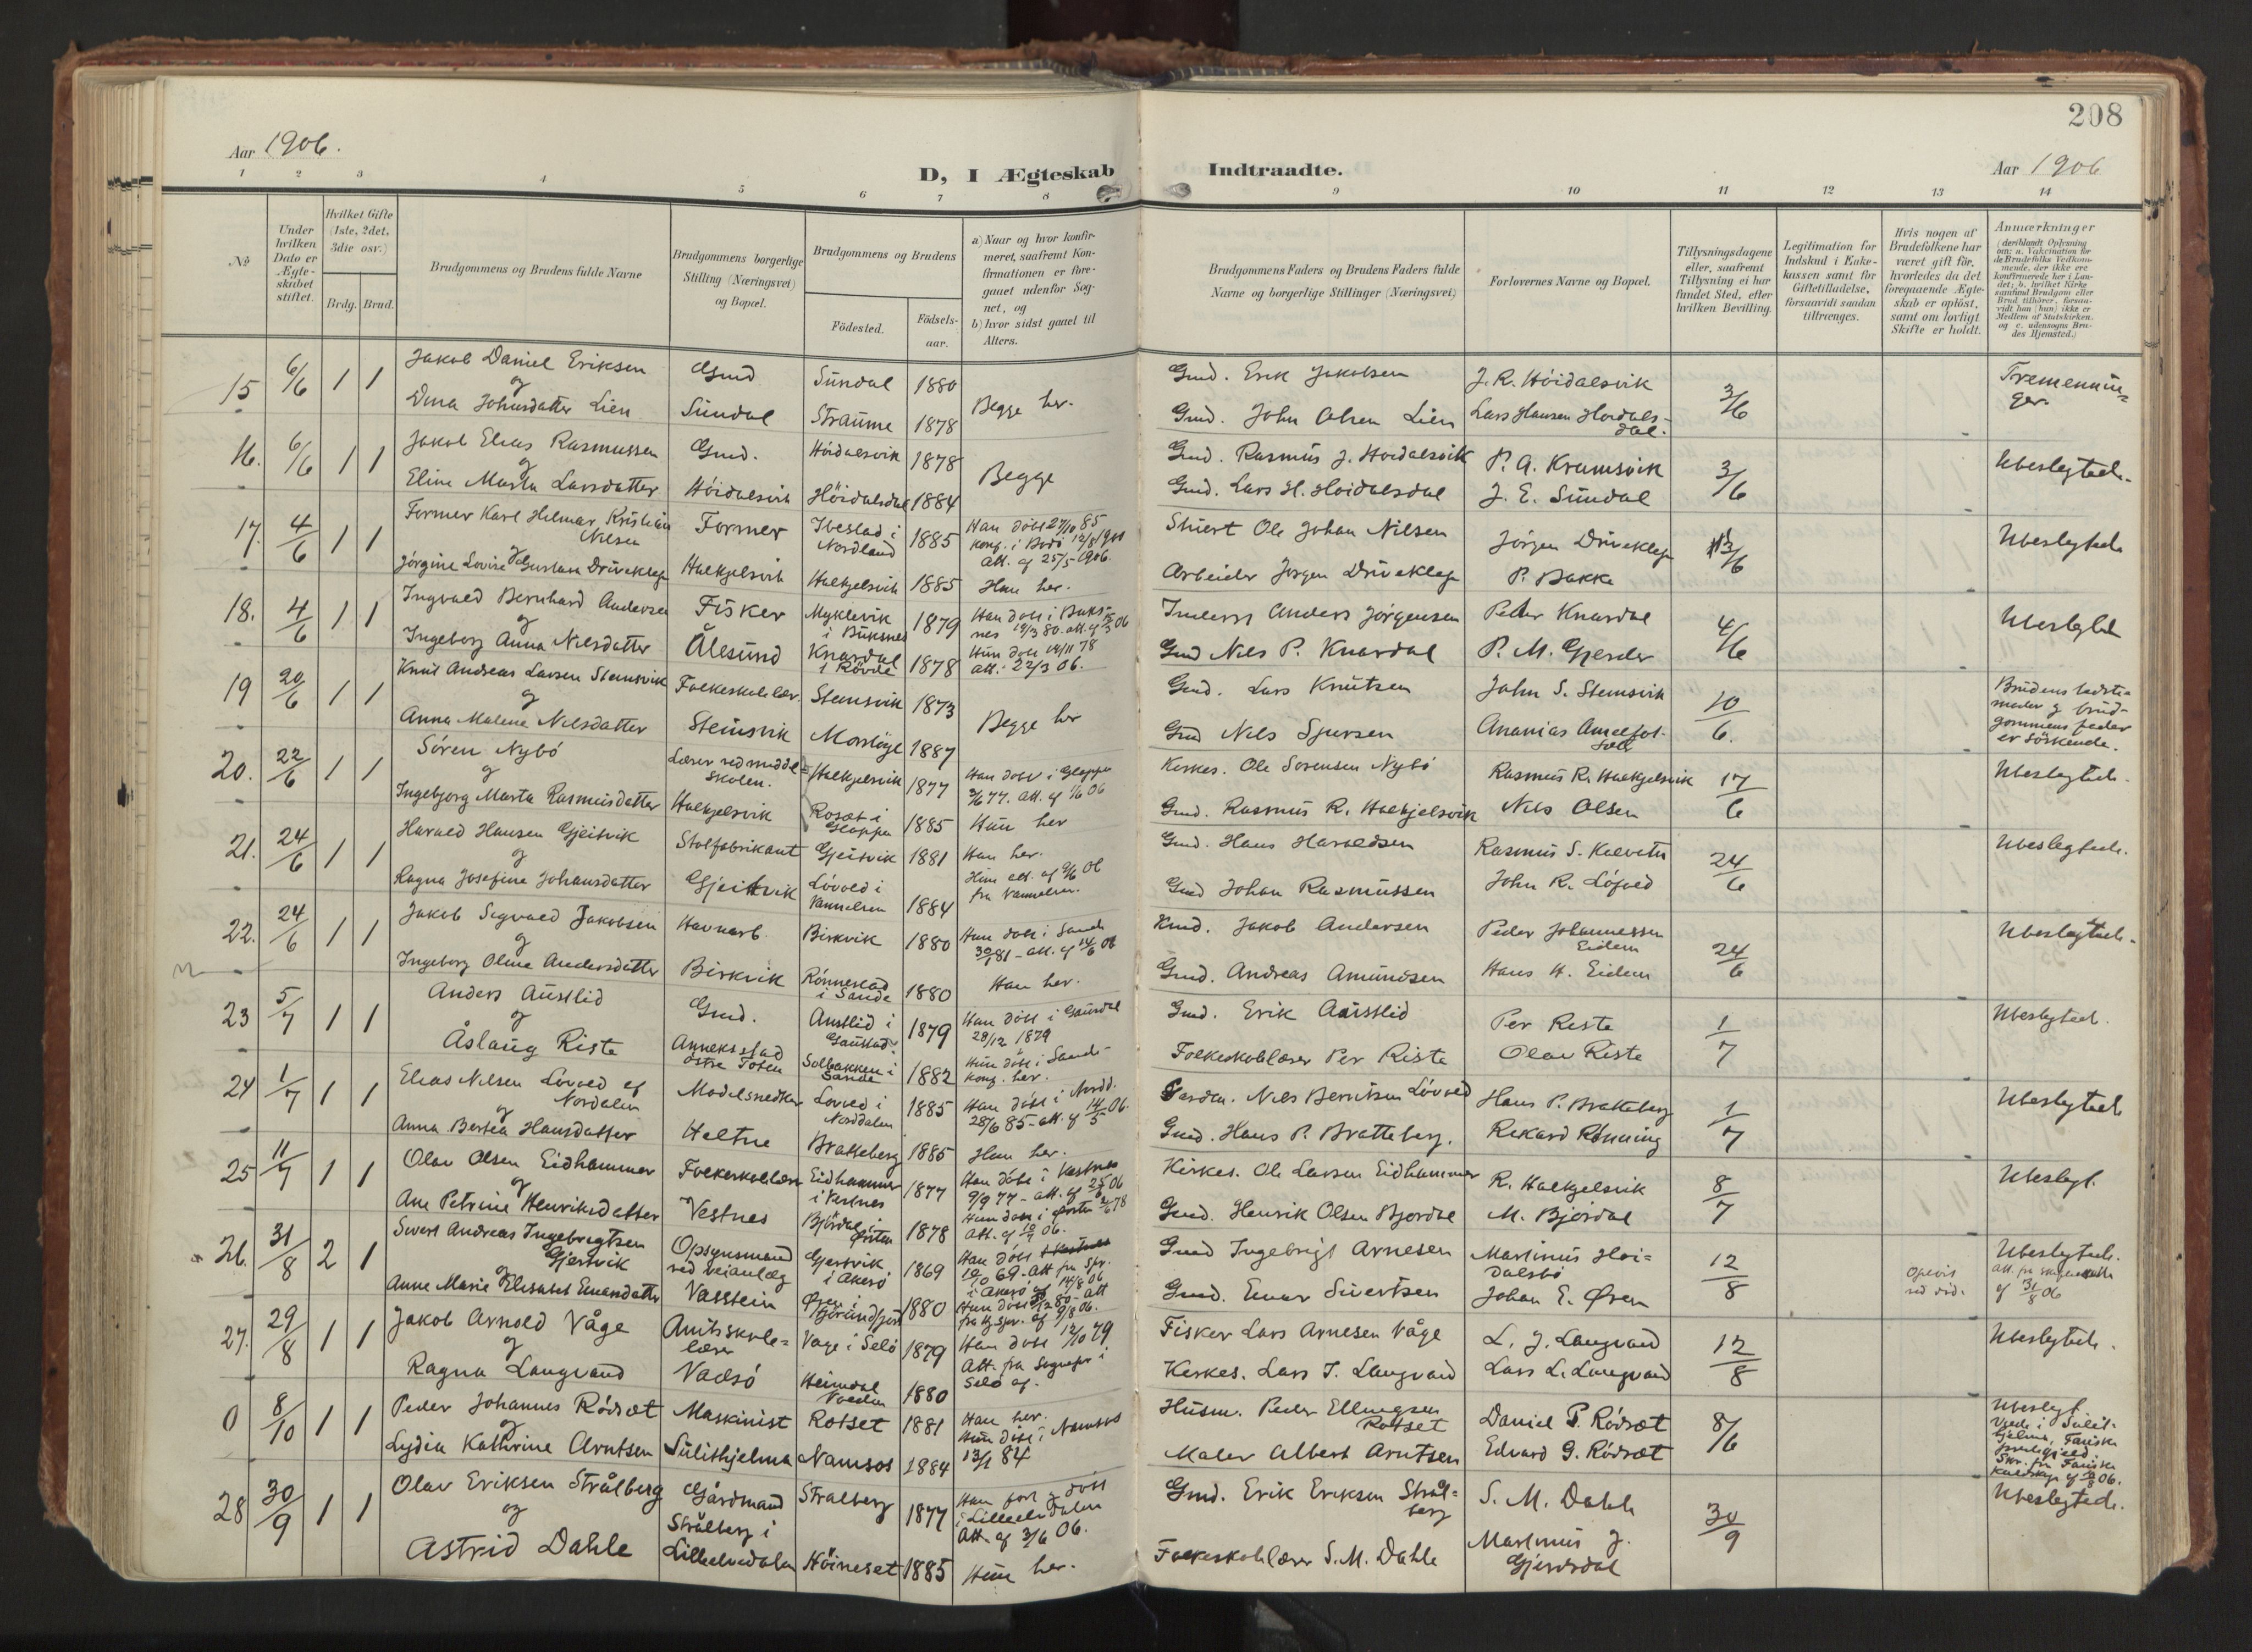 208
Aar 1906.
D, I Ægteskab Indtraadte.
Aar 1906
1 2 3 4 5 6 7 8 9 10 11 12 13 14
No
Under hvilken Dato er Ægteskabet stiftet.
Hvilket Gifte (1ste, 2det, 3die osv.)
Brdg. Brud.
Brudgommens og Brudens fulde Navne
Brudgommens borgerlige Stilling (Næringsvei) og Bopæl.
Brudgommens og Brudens
Födested.
Födsels-aar.
a) Naar og hvor konfirmeret, saafremt Konfirmationen er foregaaet udenfor Sognet, og
b) hvor sidst gaaet til Alters.
Brudgommens Faders og Brudens Faders fulde Navne og borgerlige Stillinger (Næringsvei)
Forlovernes Navne og Bopæl.
Tillysningsdagene eller, saafremt Tillysning ei har fundet Sted, efter hvilken Bevilling.
Legitimation for Indskud i Enkekassen samt for Giftetilladelse, forsaavidt saadan tiltrænges.
Hvis nogen af Brudefolkene har været gift før, hvorledes da det foregaaende Ægteskab er opløst, samt om lovligt Skifte er holdt.
Anmærkninger
15 6/6 1 1 Jakob Daniel Eriksen Gmd Sundal 1880 Begge her. Gmd. Erik Jakobsen J. R. Höidalsvik 3/6 Tremenninger.
og
Dina Johnsdatter Lien Sundal Straume 1878 Gmd. John Olsen Lien Lars Hansen Hoidalsdal.
16. 6/6 1 1 Jakob Elias Rasmussen Gmd. Höidalsvik 1878 Begge Gmd. Rasmus J. Hoidalsvik P. A. Kramsvik 3/6 Ubeslegtede.
og
Eline Marta Larsdatter Höidalsvik Höidalsdal 1884 Gmd. Lars H. Hoidalsdal J. E. Sundal
17. 4/6 1 1 Former Karl Hilmar Kristian Nilsen Former Ibestad i Nordland 1885 Han döbt 27/10 85 konf. i Bodö 12/8 1900 Att. af 25/5 1906. Ole Johan Nilsen Jörgen Driveklep 3/6 Ubeslegtede
Jörgine Lovise Driveklep Halkjelsvik Halkjelsvik 1885 Hun her. Arbeider Jörgen Driveklep P. Bakke
18. 4/6 1 1 Ingvald Bernhard Andersen Fisker Myklevik i Buksnes 1879 Anders Jörgensen Peder Knardal 4/6 Ubeslegtede
og
Ingeborg Anna Nilsdatter Ålesund Knardal i Rövde 1878 Hun döbt 14/11 78 att. 22/3 06. Gmd Nils P. Knardal P. M. Gjerder
19 20/6 1 1 Knut Andreas Larsen Steinsvik Folkeskolelær. Steinsvik 1873 Begge her Gmd. Lars Knutsen John S. Steinsvik 10/6. Brudens bedstemoder og brudgommens fader er söskende.
og
Anna Malene Nilsdatter Steinsvik 1887 Gmd Nils Sjursen Ananias
20. 22/6 1 1 Sören Nybö Lærer ved middelskolen. Halkjelsvik 1877 Kirkes. Ole Sorensen Nybö Rasmus R. Halkjelsvik 17/6 Ubeslegtede.
og
Ingebjorg Marta Rasmusdatter Halkjelsvik Rosæt i Gloppen 1885 Hun her Gmd. Rasmus R. Halkjelsvik Nils Olsen
21. 24/6 1 1 Harald Hansen Gjeitvik Stolfabrikant Gjeitvik 1881 Han her. Gmd. Hans Haraldsen Rasmus S. Kalvatn 24/6 Ubeslegtede.
og
Ragna Josefine Johansdatter Gjeitvik Lövold i Vannelven 1884 Hun att. af 9/6 06 fra Vannelven. Gmd Johan Rasmussen John R. Löfold
22. 24/6 1 1 Jakob Sigvald Jakobsen Havnearb. Birkvik 1880 Jakob Andersen Peder Johannessen Eidem 24/6 Ubeslegtede.
og
Ingeborg Oline Andersdatter Birkvik Rönnestad i Sande 1880 Hun her. Gmd. Andreas Amundsen Hans H. Eidem
23 5/7 1 1 Anders Austlid Gmd. Austlid i Gausdal 1879 Han döbt i Gausdal 28/12 1879 Gmd. Erik Austlid Per Riste 1/7 Ubeslegtede.
og
Åslaug Riste Anneksstad östre Toten Solbakken i Sande 1882 Hun döbt i Sande konf. her. Folkeskolelærer Per Riste Olav Riste
24 1/7 1 1 Elias Nilsen Lovold af Nordalen Modelsnedker Lovold i Norddalen 1885 Han döbt i Nordd. 28/6 85 - att. af 14/5 06. Nils Berntsen Lövold Hans P. Bratteberg 1/7 Ubeslegtede
og
Anna Bertea Hansdatter Heltne Bratteberg 1885 Hun her. Gmd. Hans P. Bratteberg. Rikard Rönning
25 11/7 1 1 Olav Olsen Eidhammer Folkeskolelærer Eidhammer i Vestnes 1877 Han döbt i Vestnes 9/9 77 - att. af 25/6 06 Kirkes. Ole Larsen Eidhammer R. Halkjelsvik 8/7 Ubeslegt.
og
Ane Petrine Henriksdatter Vestnes Björdal i Örsten 1878 Gmd. Henrik Olsen Bjordal M. Bjordal
26. 31/8 2 1 Sivert Andreas Ingebrigtsen Gjersvik Opsynsmand ved veianlæg Gjersvik i Akerö 1869 Gmd Ingebrigt Arnesen Martinus Hoidalsbö 12/8 Ubeslegtede.
og
Anne Marie Elisabet Einarsdatter Vasstein 1880 Gmd. Einar Sivertsen Johan E. Ören
27. 29/8 1 1 Jakob Arnold Våge Amtsskolelærer Vage i Selö 1879 Han döbt 12/10 79 Att. fra Sognepr i Selö af. Fisker Lars Arnesen Våge L. J. Langvand 12/8 Ubeslegtede.
og
Ragna Langvand Vadsö Heimdal Volden 1880 Kirkes. Lars J. Langvand Lars L. Langvand
0 8/10 1 1 Peder Johannes Rödsæt Maskinist Rotset 1881 Han her. Husm. Peder Ellingsen Rotset Daniel P. Rödsæt 8/6 Ubeslegt.
og
Lydia Kathrine Arntsen Sulithjelma Namsos 1884 Hun döbt i Namsos 13/1 84 Maler Albert Arntsen Edvard G. Rödsæt
28 30/9 1 1 Olav Eriksen Strålberg Gårdmand Strålberg i Lilleelvedalen Stralberg 1877 Han döbt i Lilleelvdalen Att. af 3/6 06. Gmd. Erik Eriksen Strålberg S. M. Dahle 30/9 Ubeslegtede.
og
Astrid Dahle Höineset 1885 Hun her. Folkeskolelærer S. M. Dahle Martinus J. Gjerdsdal